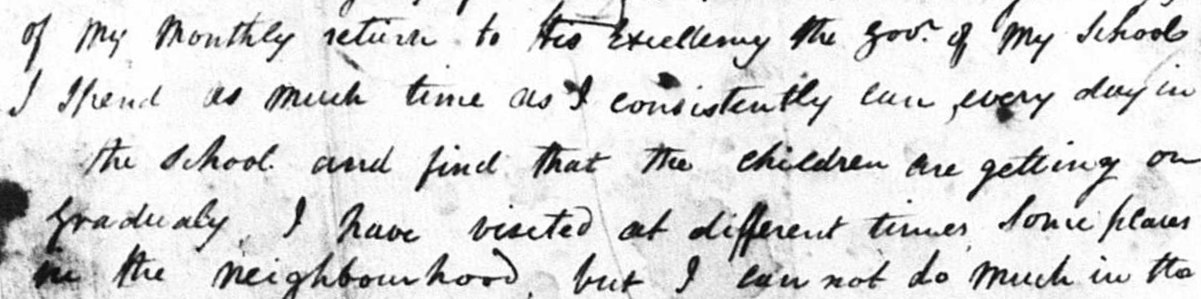 of My Monthly return to His Excellency the Govr. of My School
I Spend as much time as I consistently can every day in
the School and find that the children are getting on
Gradualy. I have visited at different times Some places
in the neighbourhood, but I can not do much in the